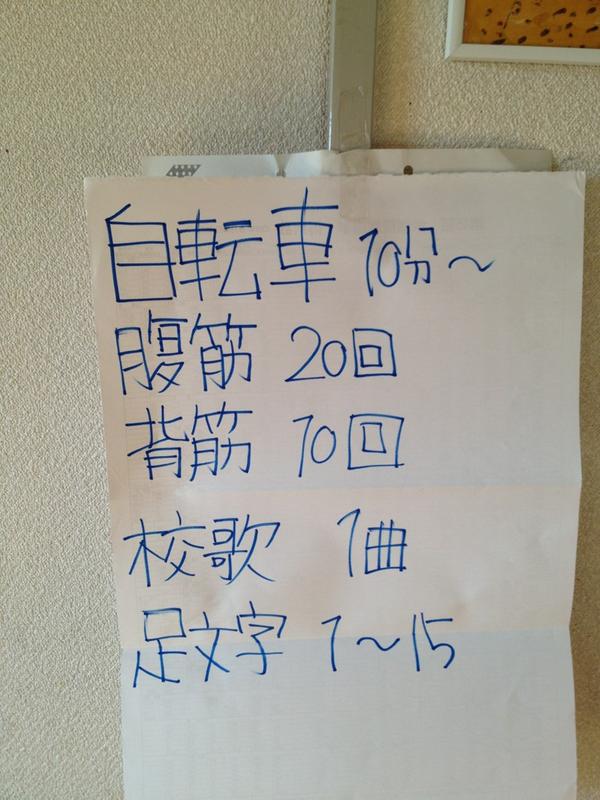 自転車 10分～
腹筋 20回
背筋 10回
校歌 1曲
足文字 1～15